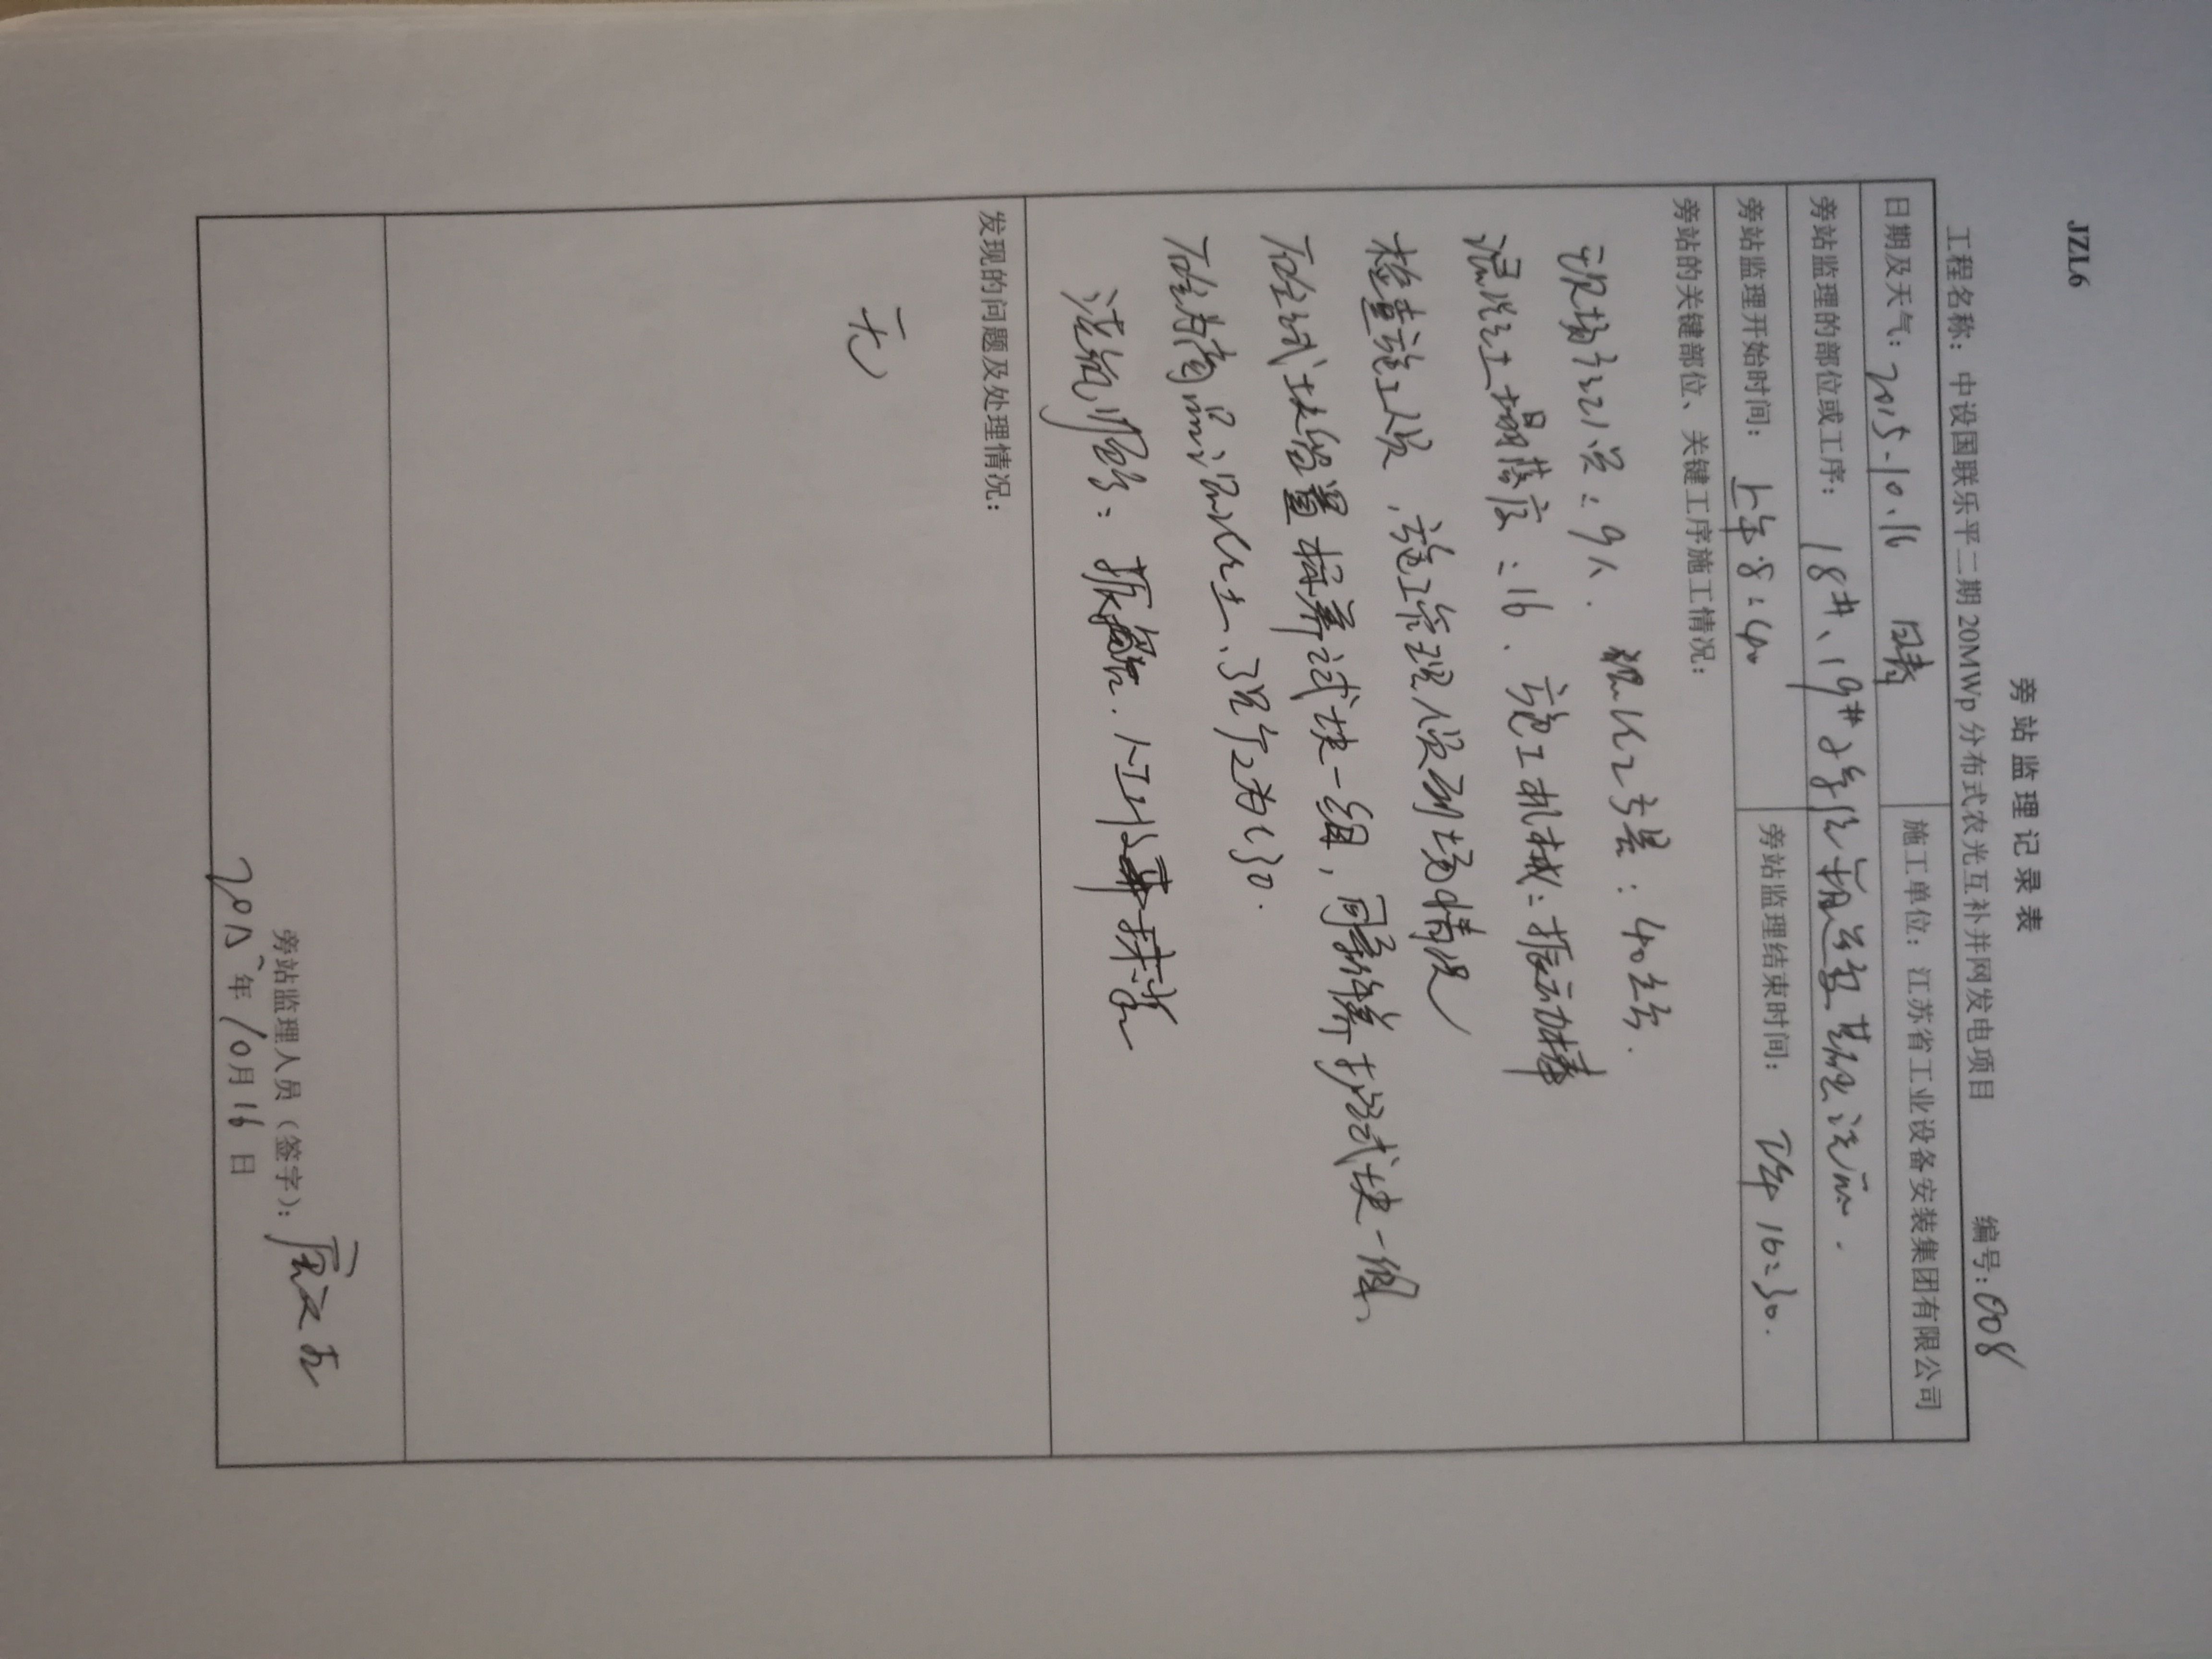 JZL6
旁站监理记录表
工程名称：中设国联乐平二期20MWp分布式农光互补并网发电项目 编号：008
日期及天气：2015.10.16 晴 施工单位：江苏省工业设备安装集团有限公司
旁站监理的部位或工序：18#、19#逆变器基础浇
旁站监理开始时间：上午8:40 旁站监理结束时间：下午16:30.
旁站的关键部位、关键工序施工情况：
现场 : 9人. 工 量：40
混凝土塌落度：16、施工机械：振动棒
检查施工人员，施工管理人员到场情况
砼试块留置标养试块一组，同条件养护试块一组、
砼为商品混凝土、强度为C30.
浇筑顺序：
发现的问题及处理情况：
无
旁站监理人员（签字）：
2015年10月16日